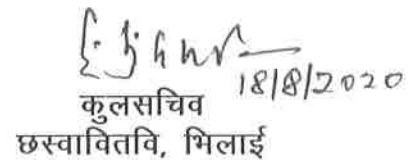 18/8/2020
कुलसचिव
छस्वावितवि, भिलाई